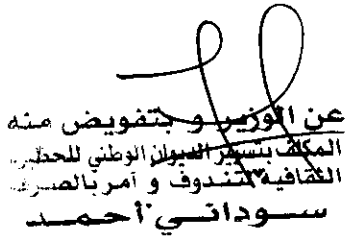 عن الوزير و بتفويض منه
المكلف بتسيير الديوان الوطني للحظيرة
الثقافية لتندوف و آمر بالصرف
سـوداتـي أحمـد